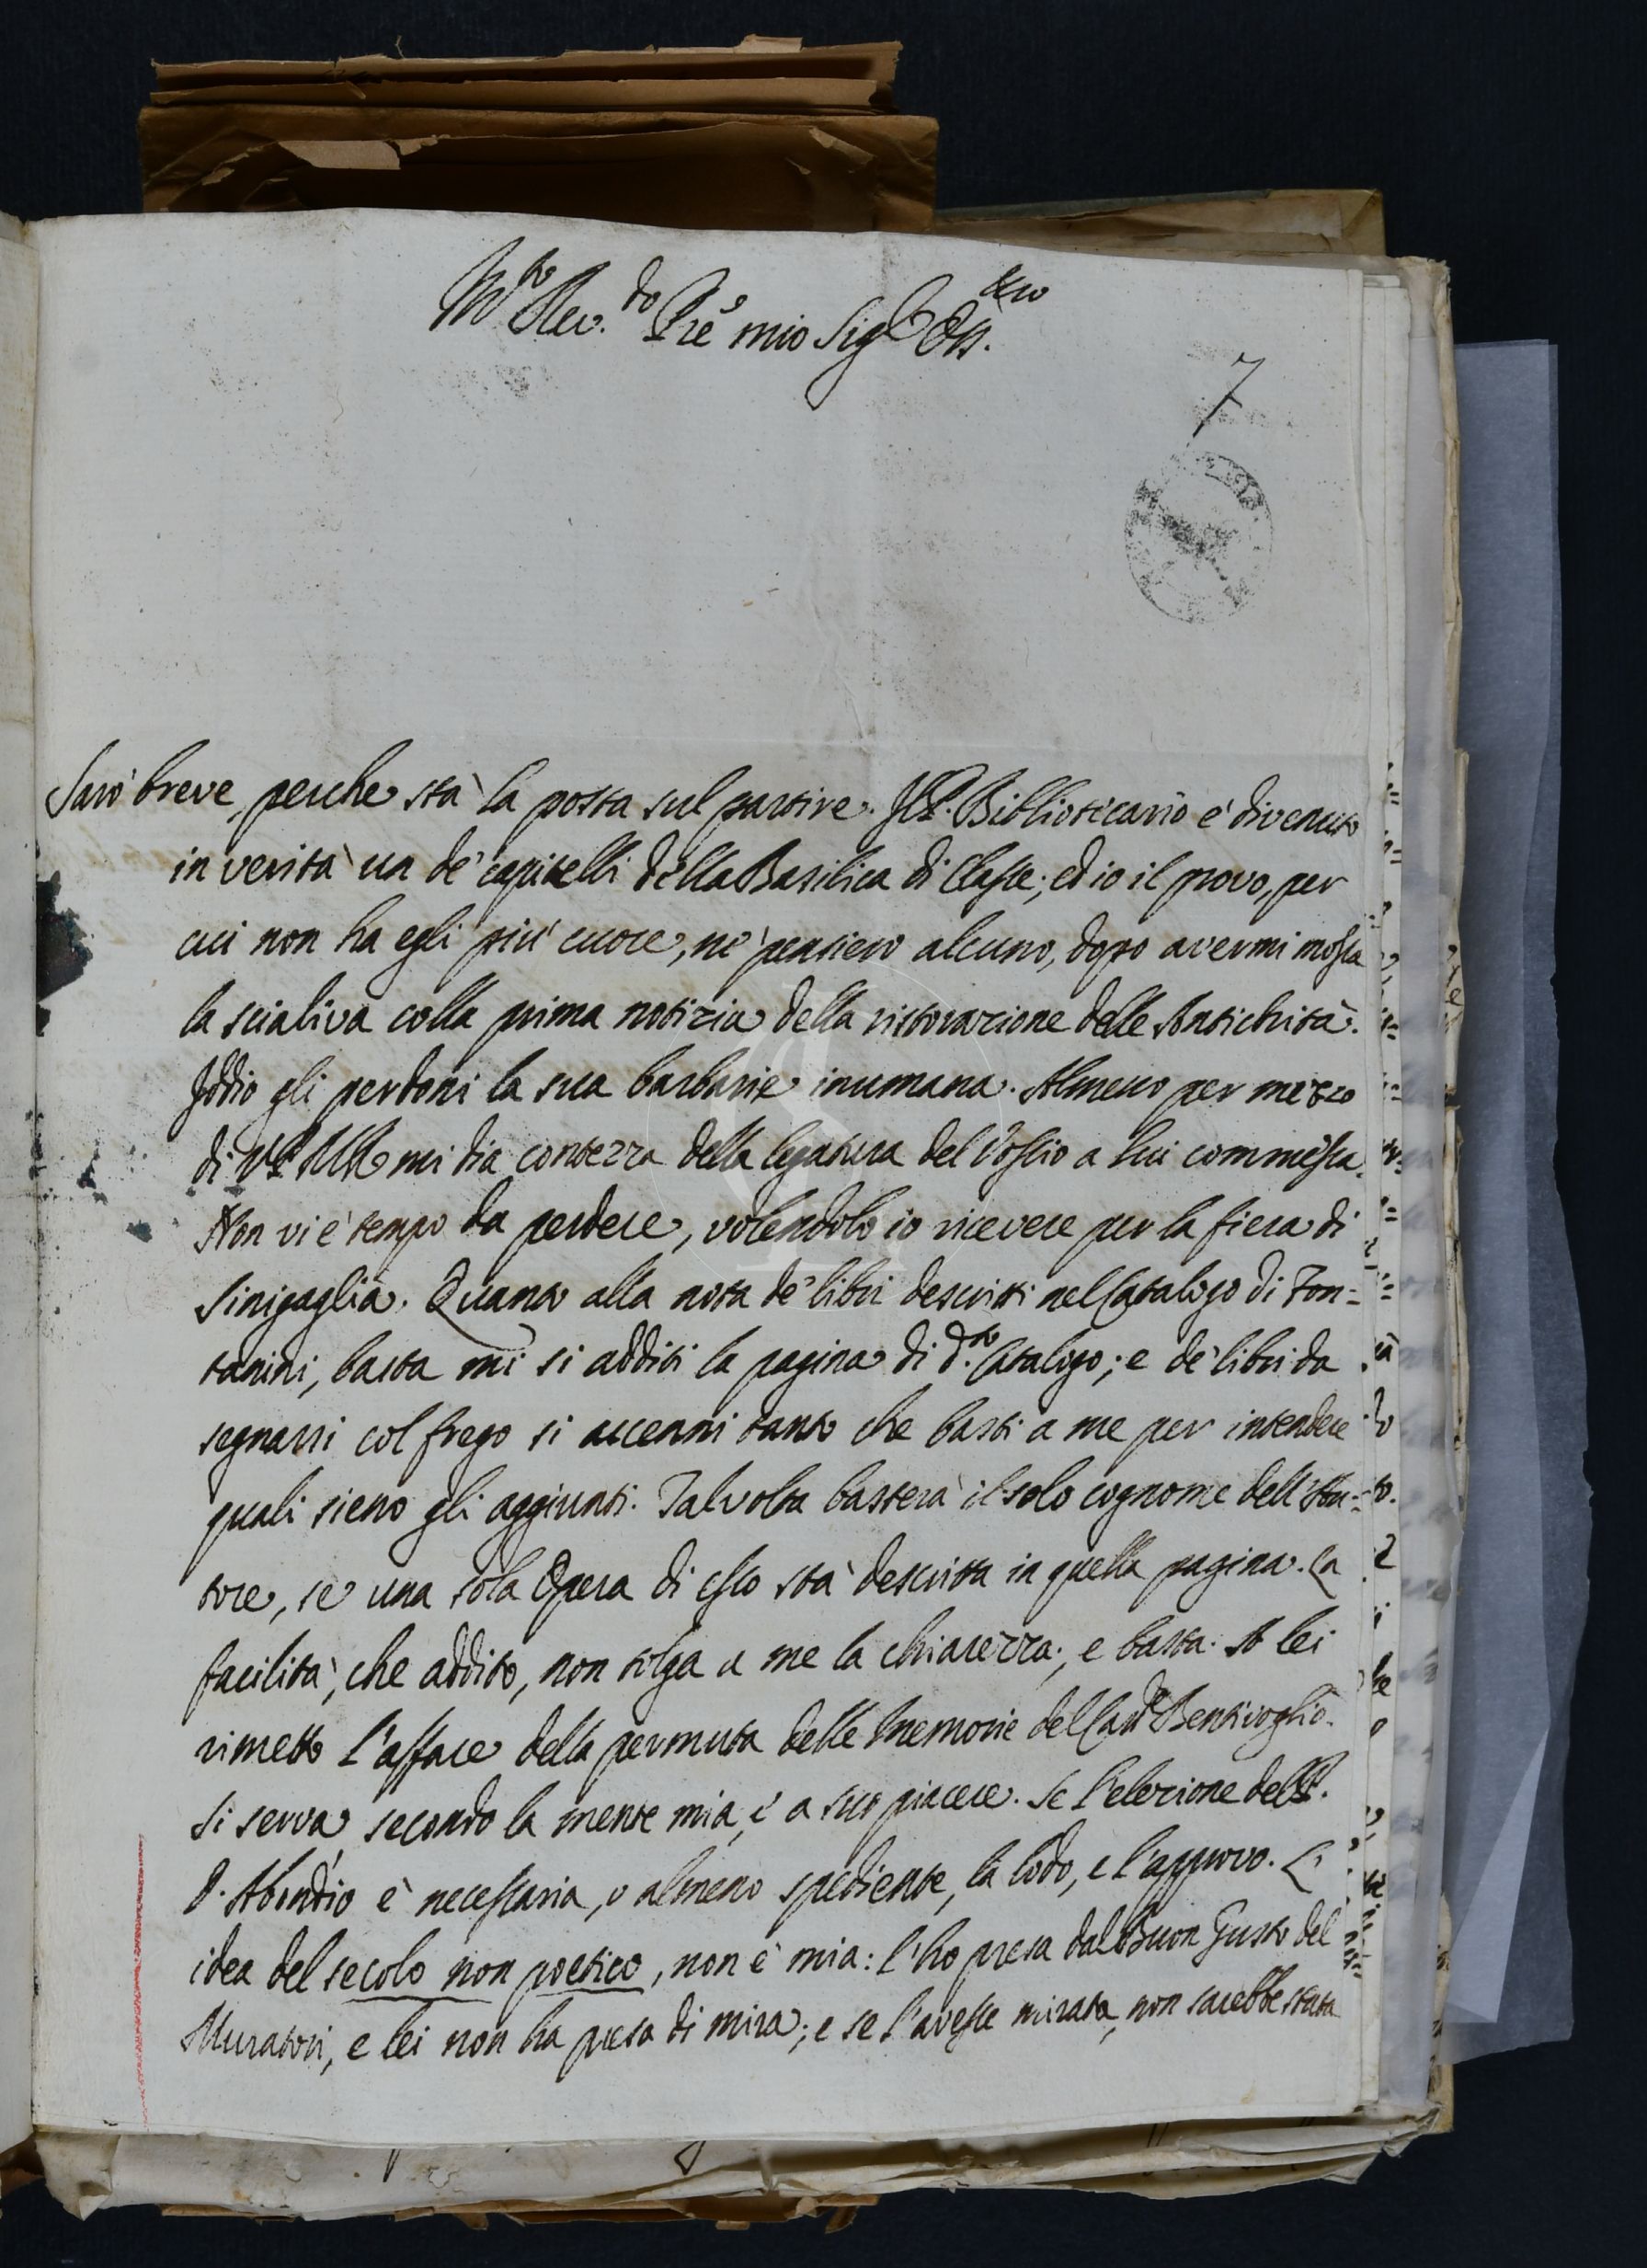 Mto Rev.do Pre mio Sigr Oss.mo
7
Sarò breve, perche stà la posta sul partire. Il P. Bibliotecario è divenuto
in verità un de' capitelli della Basilica di Classe; ed io il provo, per
cui non ha egli più cuore, nè pensiero alcuno, dopo avermi mossa
la scialiva colla prima notizia della ristorazione delle Antichità.
Iddio gli perdoni la sua barbarie inumana. Almeno per mezzo
di VP MR mi dia contezza della legatura del Vossio a lui commessa.
Non vi è tempo da perdere, volendolo io ricevere per la fiera di
Sinigaglia. Quanto alla nota de' libri descritti nel Catalogo di Fon=
tanini, basta mi si additi la pagina di d.to Catalogo; e de' libri da
segnarsi col frego si accenni tanto che basti a me per intendere
quali sieno gli aggiunti. Talvolta basterà il solo cognome dell'Au=
tore, se una sola Opera di esso stà descritta in quella pagina. La
facilità, che addito, non tolga a me la chiarezza; e basta. A lei
rimetto l'affare della permuta delle Memorie del Card Bentivoglio.
Si serva secondo la mente mia, è a suo piacere. Se l'elezione del P.
D. Abondio è necessaria, o almeno spediente, la lodo, e l'approvo. L'
idea del secolo non poetico, non è mia: l'ho presa dal Buon Gusto del
Muratori, e lei non ha presa di mira; e se l'avesse mirata, non sarebbe stata